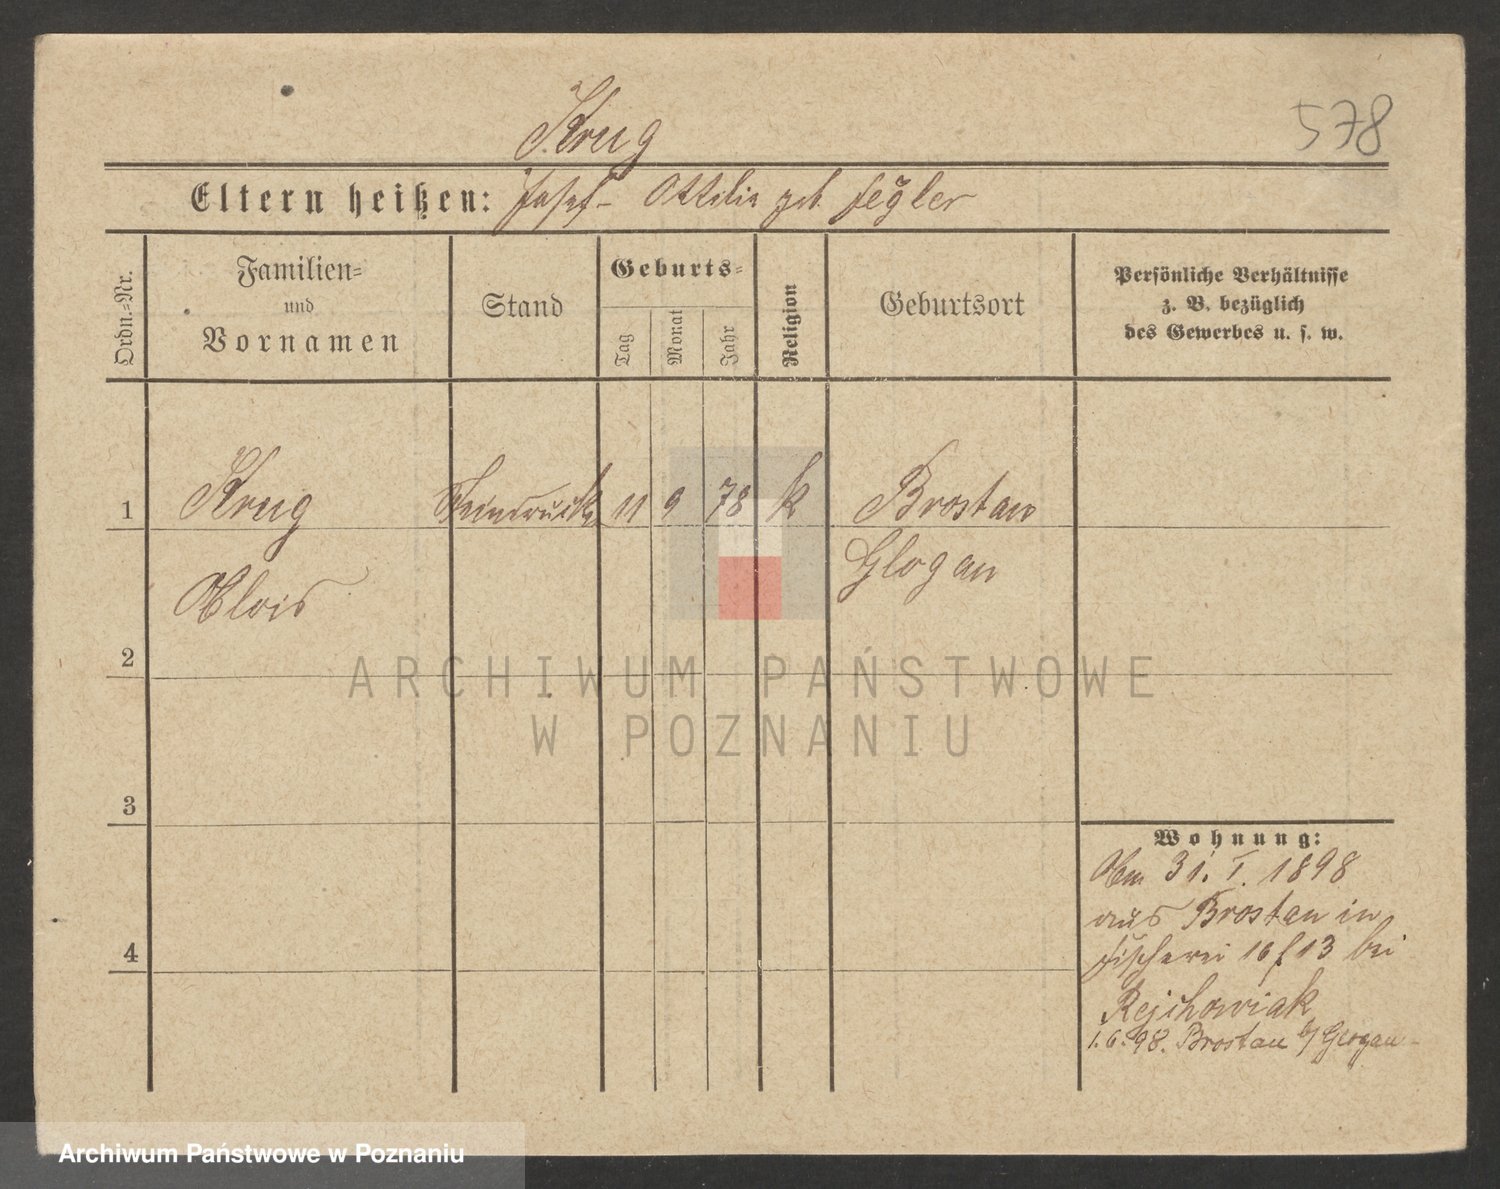 578
Krug
Eltern heißen: Josef - Ottilia geb. Fegler
Ordn.-Nr.
Familien-
und
Vornamen
Stand
Geburts-
Tag
Monat
Jahr
Religion
Geburtsort
Persönliche Verhältnisse
z. B. bezüglich
des Gewerbes u. s. w.
1 Krug 11 9 78 k Brostau
Glogau
Alois
2
3
4
Wohnung:
Am 31. I. 1898
aus Brostau in
Fischerei 16 f 13 bei
Rejchowiak
1.6.98. Brostau b/ Glogau
ARCHIWUM PAŃSTWOWE
W POZNANIU
Archiwum Państwowe w Poznaniu